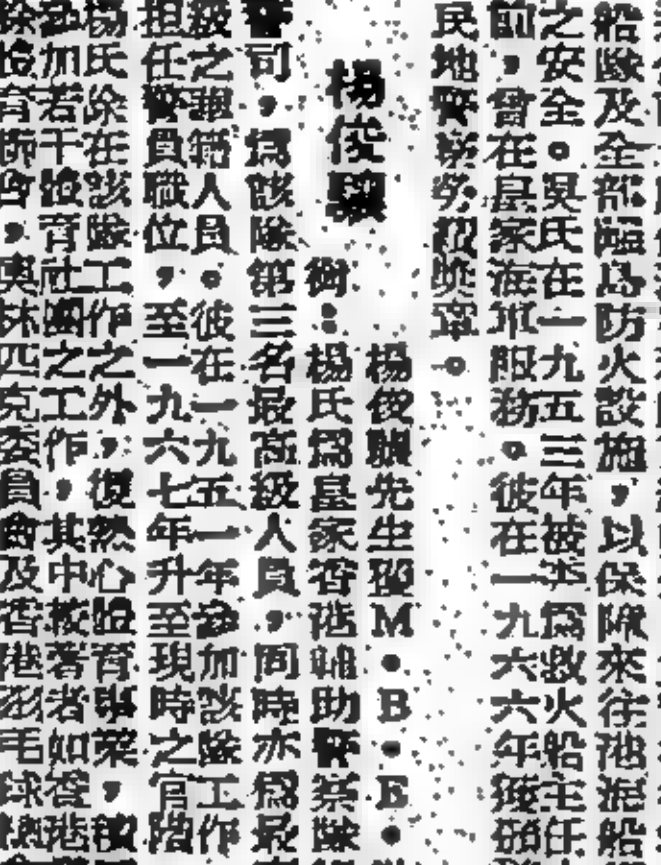 船隊及全部臨島防火設施，以保障來往池泥船
之安全。吳氏在一九五三年被委為救火船主任
前，曾在皇家海軍服務。彼在一九六六年獲頒
民地警察勞績獎章。
楊俊驥
楊俊驥先生獲M●B●E●
銜：楊氏為皇家香港輔助警察隊
司，為該隊第三名最高級人員，同時亦為最
級之華籍人員。彼在一九五一年參加該隊工作
担任警員職位，至一九六七年升至現時之官階
楊氏除在該隊工作之外，復熱心體育事業，
參加若干體育社團之工作，其中較著者如香港
育協會，奧林匹克委員會及香港羽毛球